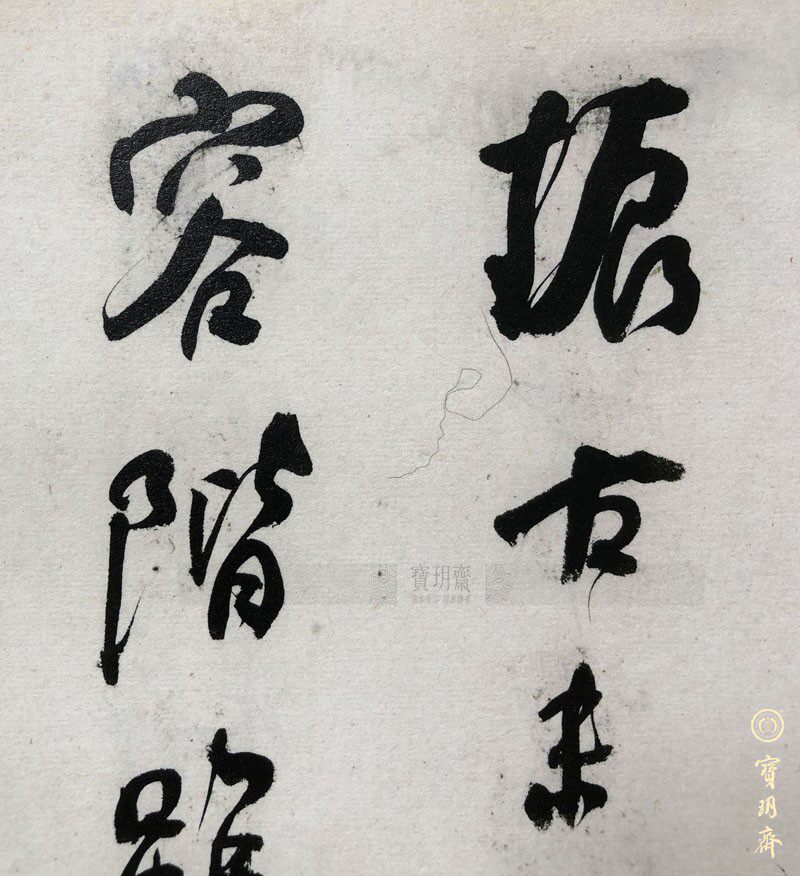 振古未
容階
寶玥齋
寶玥齋